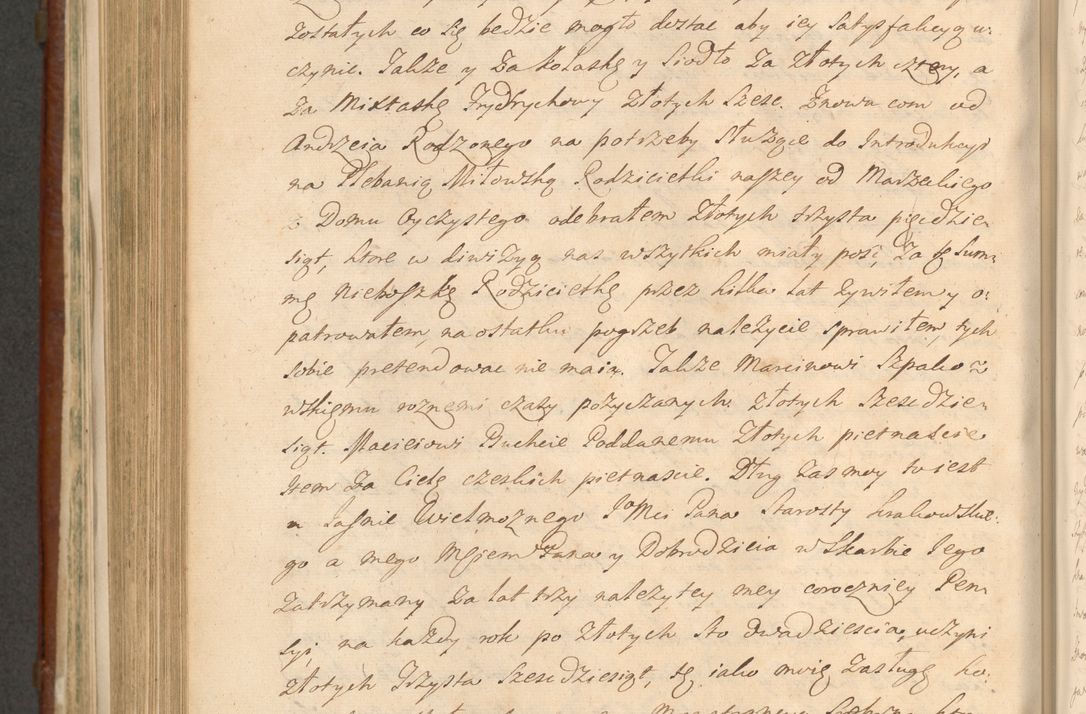 zostałych co się bedzie mogło dostac aby iey satysfakcyą u:
czynic. Takze y za Kolaskę y Siodło za złotych cztery, a
za Mixtaskę Frydrychowy złotych szesc. Znowu com od
Andrzeia Rodzonego na potrzeby służące do Introdukcyi
na Plebanią Miłowską Rodzicielki naszey od Marzeckiego
z Domu oyczystego odebrałem złotych trzysta pięcdzie:
siąt, ktore w diwizyą nas wszytkich miały pośc, za tę Sum:
mę Nieboszkę Rodzicielkę przez kilka lat zywiłem y o:
patrowałem, na ostatku pogrzeb nalezycie sprawiłem, tych
sobie pretendowac nie maią. Takze Marcinowi Szpako=
wskiemu roznemi czasy pozyczanych złotych szescdzie:
siąt. Maciciowi Buchcie Poddanemu złotych pietnascie
Item za Cielę czeskich pietnascie. Dług zas moy to iest
u Jasnie Wielmoznego JoMci Pana Starosty krakowskie:
go a mego Msciem Pana y Dobrodzicia w Skarbie Jego
zatrzymany za lat trzy nalezytey mey coroczniey Pen:
syi, na kazdy rok po złotych sto dwadziescia, uczyni
złotych Trzysta szescdziesiąt, tę iako moię zasługę ko: